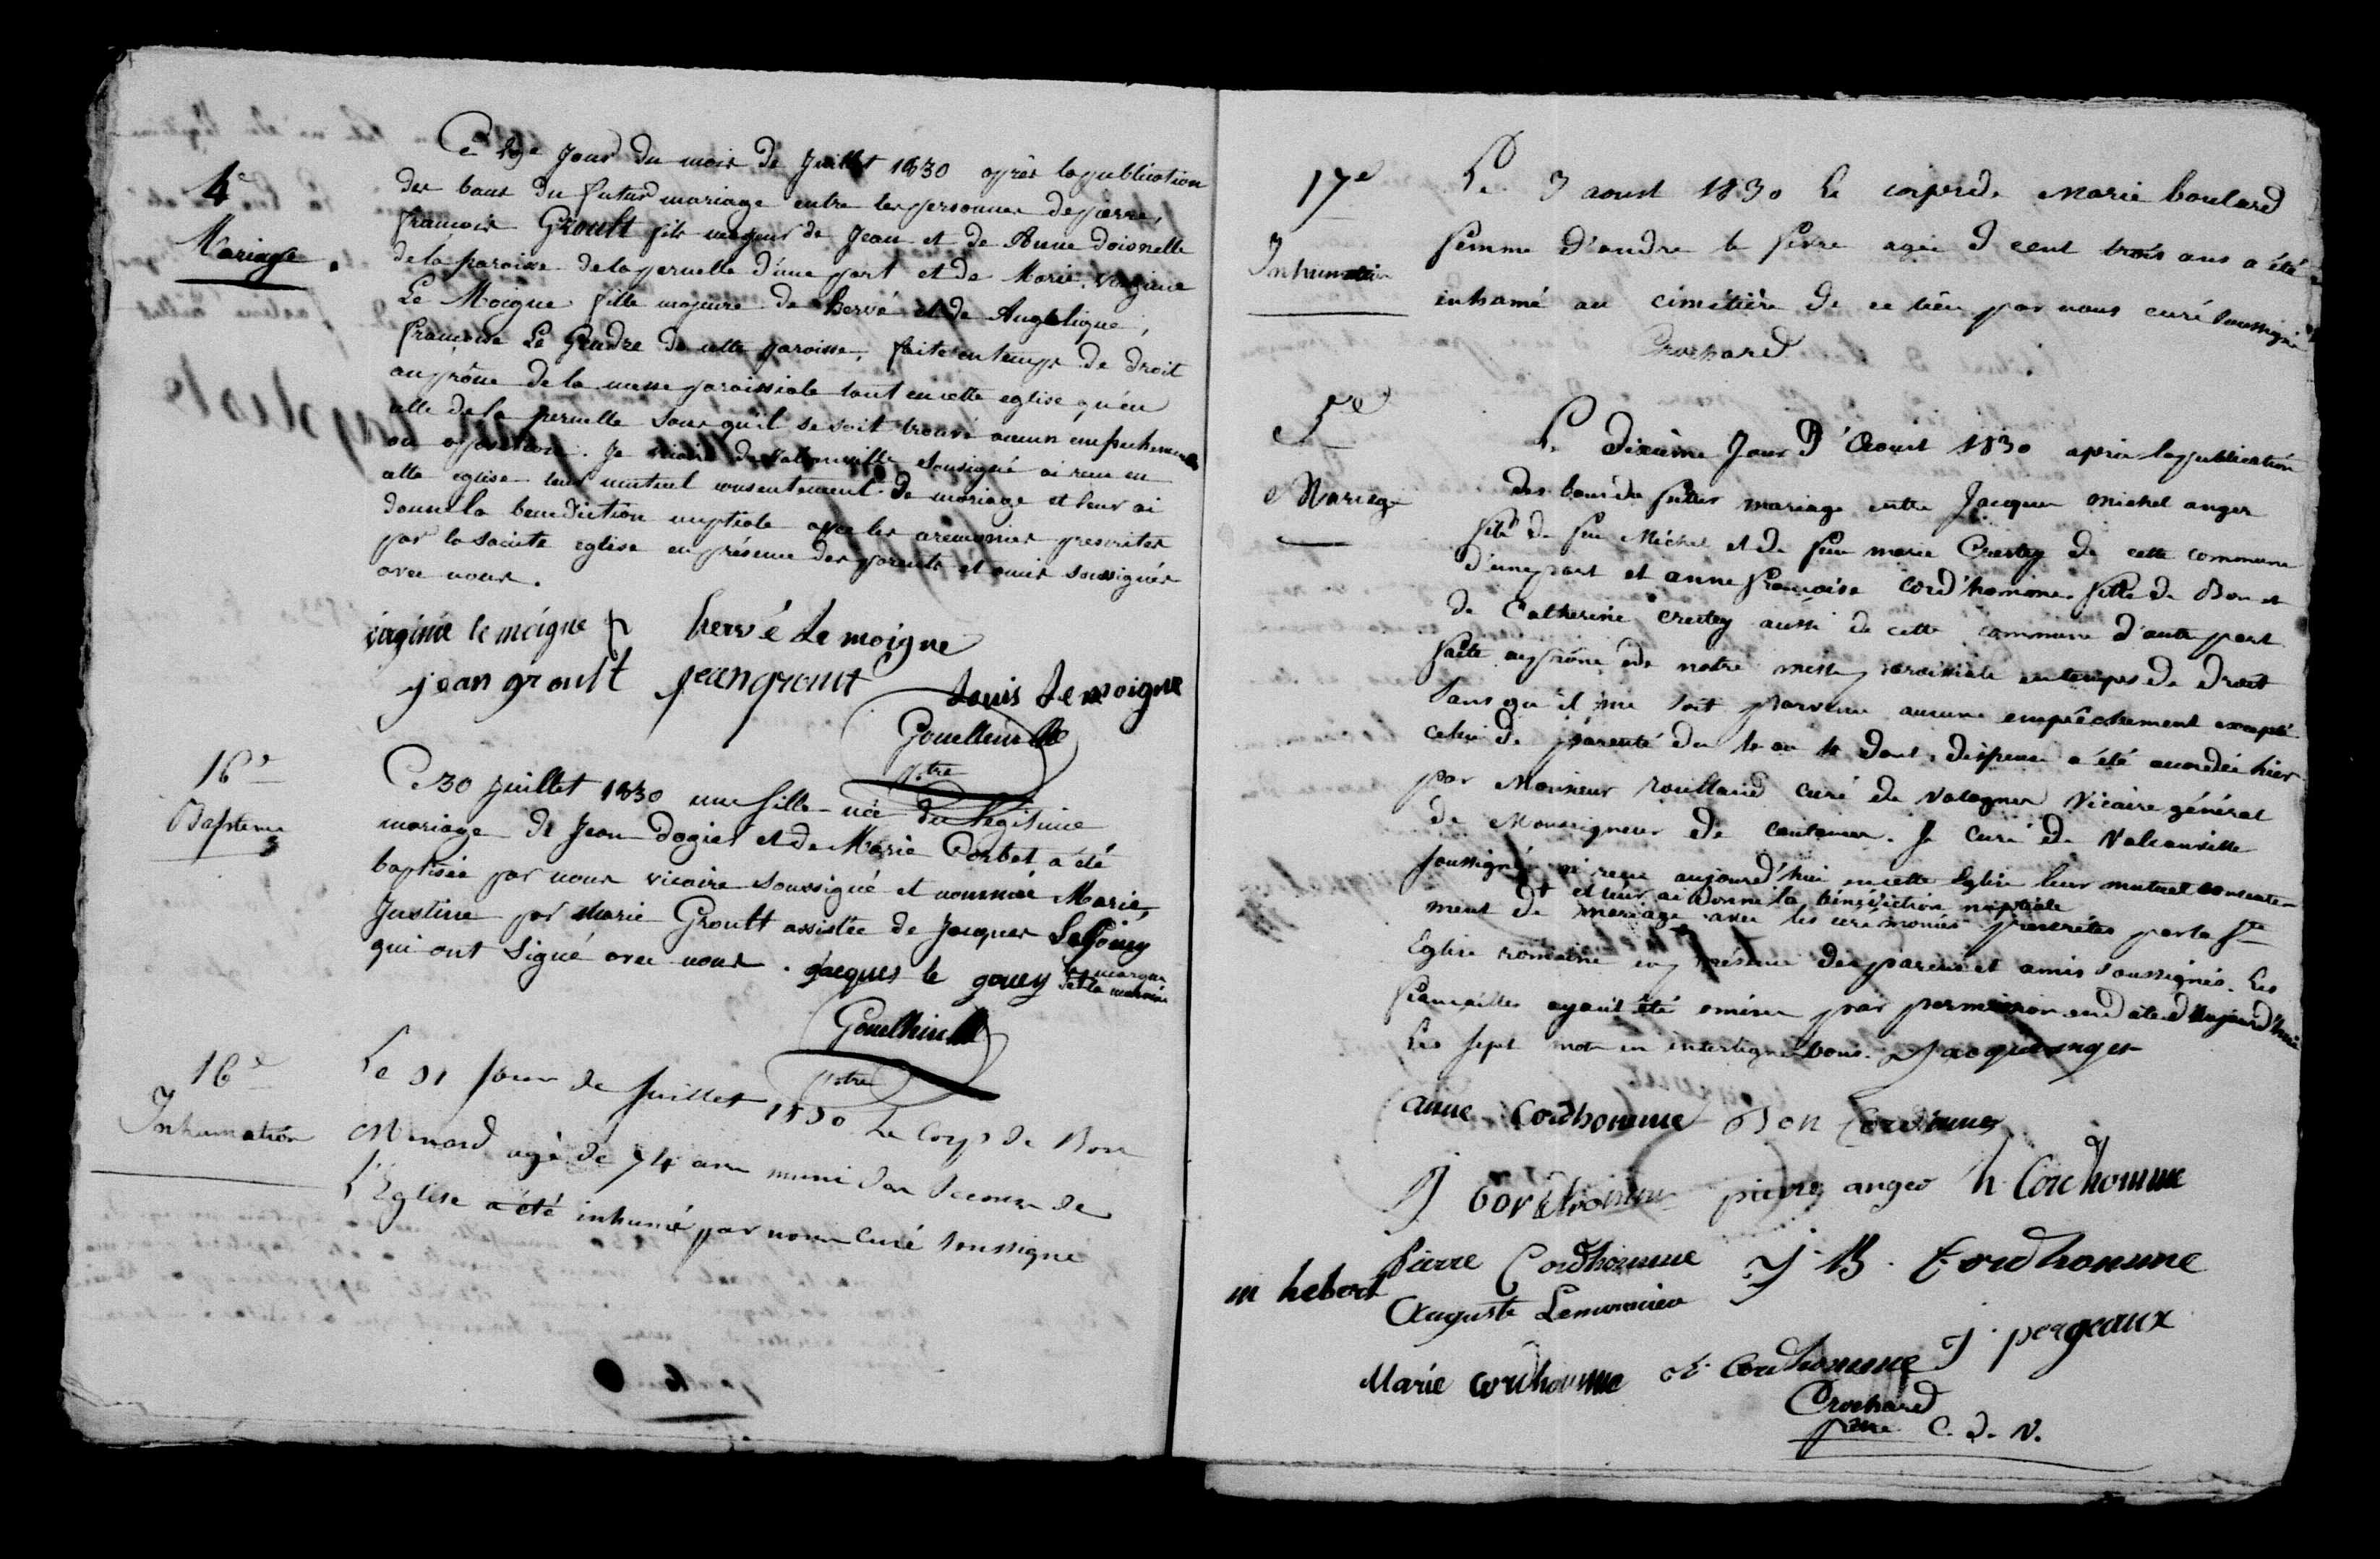 4e
Mariage.
Ce 29e Jour du mois de Juillet 1830 après la publication
des bans du futur mariage entre les personnes de pierre,
francois Groult fils majeur de Jean et de Anne doisnelle
de la paroisse de la pernelle d'une part et de Marie Virginie
Le Moigne fille majeure de hervé et de Angelique,
francoise Le Gendre de cette paroisse, faite en temps de droit
au prône de la messe paroissiale tant en cette eglise qu'en
celle de la pernelle sans qu'il se soit trouvé aucun empechement
ou opposition. Je vicaire de Valcanville soussigné ai recu en
cette eglise leur mutuel consentement de mariage et leur ai
donné la benediction nuptiale avec les ceremonies prescrites
par la sainte eglise en présence des parents et amis soussignés
avec nous.
virginie le moigne hervé Le moigne
jean groult jean groult Louis Lemoigne
ptre
16e
Bapteme
Ce 30 juillet 1830 une fille née du légitime
mariage de Jean dogier et de Marie Corbet a été
baptisée par nous vicaire soussigné et nommée Marie,
Justine par Marie Groult assistée de Jacques LeGouey
qui ont signé avec nous. Jacques le gouey
ptre
16e
Inhumation
Le 31 jour de Juillet 1830 Le Corps de Bon
Menard agé de 74 ans muni des Secours de
L'Eglise a été inhumé par nous Curé soussigné
17e
Inhumation
Le 3 aoust 1830 Le corps de Marie boulard
femme d'andre le fevre agée d cent trois ans a été
inhumé au cimétière de ce lieu par nous curé soussigné
Crochard
5e
Mariage
Le dixième Jour D'Aoust 1830 après la publication
des bans du futur mariage entre Jacques michel anger
fils de feu Michel et de feu marie Crestey de cette commune
d'une part et anne françoise cord'homme fille de Bon et
de Catherine crestey aussi de cette commune d'autre part
faite au prône de notre messe paroissiale en temps de droit
sans qu'il me soit parvenu aucune empêchement excepté
celui de parenté du 4 au 4 dont dispense a été accordée hier
par Monsieur rouilland curé de Valognes Vicaire général
de Monseigneur de coutances. Je Curé de Valcanville
soussigné ai recu aujourd'hui en cette Eglise leur mutuel consente-
et leur ai donné la bénédiction nuptiale
ment de mariage avec les cérémonies prescrites par la Ste
Eglise romaine en présence des parens et amis soussignés. Les
fiançailles ayant été omises par permission en date d'aujourd'hui
Les sept mots en interligne bons. Jacques anger
anne Cordhomme Bon Cordhomme
J Cordhomme pierre anger h Cordhomme
Pierre Cordhomme J. B. Cordhomme
m hebert
Auguste Lemonnier
J. pergeaux
Marie Cordhomme Cordhomme
Crochard
ptre C. d. V.